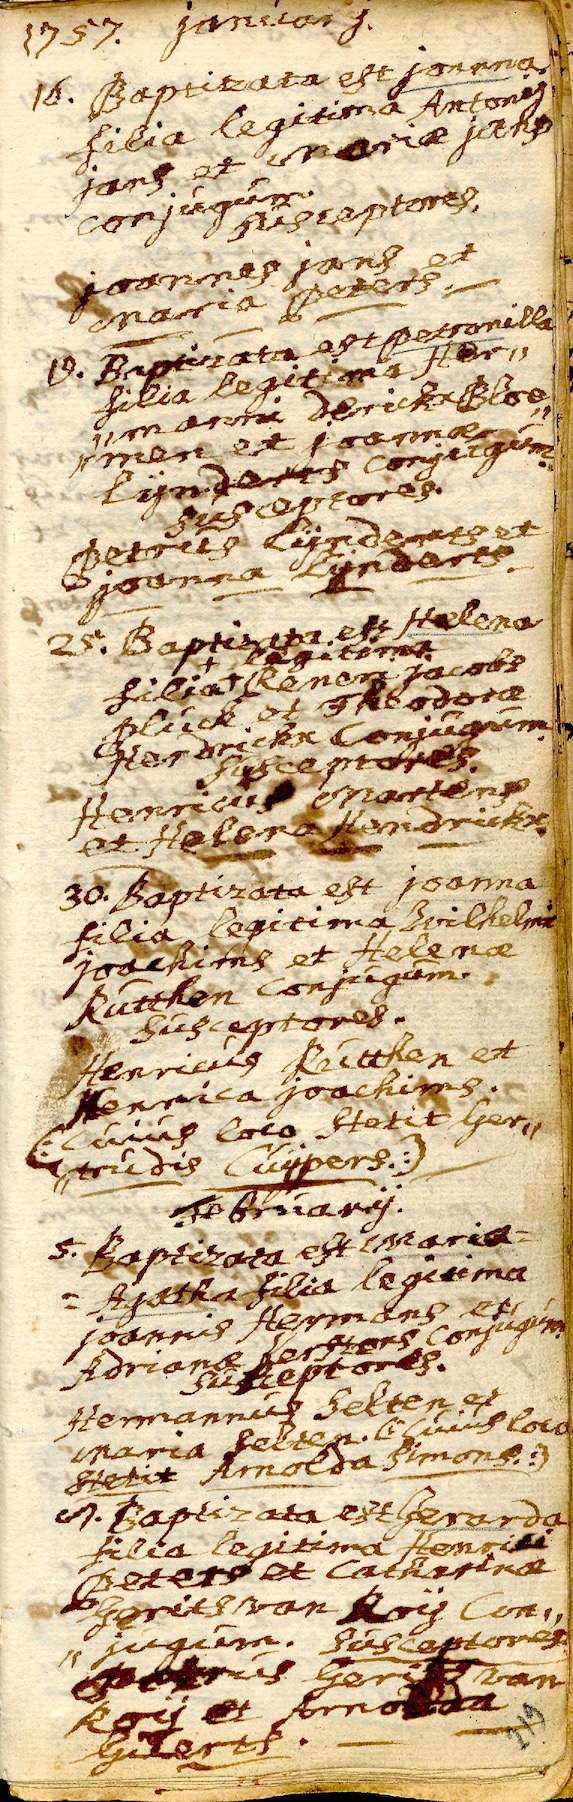 1757. januarij.
16. Baptizata est joanna
filia legitima Antonij
jans et Mariæ jans
conjugum.
Susceptores.
joannes jans et
Maria Peters.
19. Baptizata est Petronilla
filia legitima Her„
„manni Derickx Bloe„
„men et joannæ
Lijnderts conjugum.
Susceptores.
Petrus Lijnderts et
joanna Lijnderts.
25. Baptizata est Helena
legitima
filia + Reneri jacobs
pluck et Theodoræ
Hendrickx Conjugum.
Susceptores.
Henricus Martens
et Helena Hendrickx.
30. Baptizata est joanna
filia legitima Wilhelmi
joachims et Helenæ
Rutthen Conjugum.
Susceptores.
Henricus Rutthen et
Henrica joachims.
(: Cuius loco stetit Ger„
„trudis Cuijpers. :)
Februarij.
5. Baptizata est Maria=
=Agatha filia legitima
joannis Hermans et
Adrianæ Conjugum
Susceptores.
Hermannus Selten et
Maria Selten. (: Cuius loco
stetit Arnolda Simons. :)
Baptizata est Gerarda
filia legitima Henrici
Peters et Catharinæ
Gerits van Roij Con„
„jugum. Susceptores
Petrus Gerits van
Roij et Arnolda
Geerts.
219